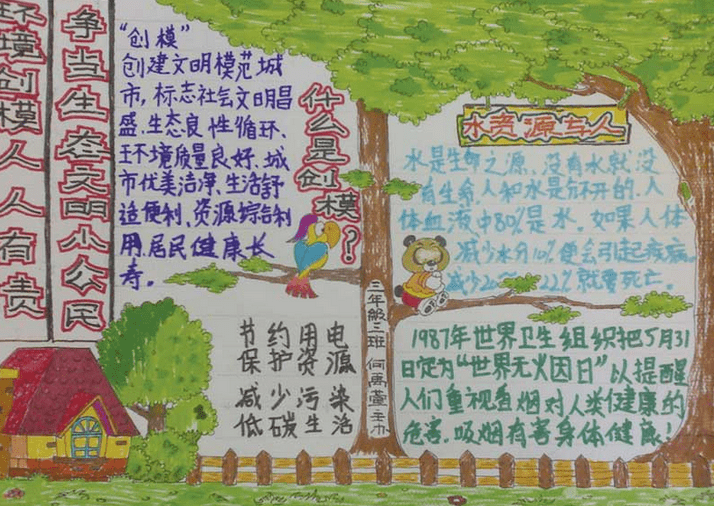 环境创模人人有责
争当生态文明小公民
什么是创模？
“创模”
创建文明模范城
市，标志社会文明昌
盛、生态良性循环、
环境质量良好、城
市优美洁净、生活舒
适便利、资源综合利
用、居民健康长
寿。
节约用电
保护资源
减少污染
低碳生活
三年级三班
水资源与人
水是生命之源，没有水就没
有生命。人和水是分不开的，人
体血液中80%是水。如果人体
减少水分10%便会引起疾病，
减少20%～22%就要死亡。
1987年世界卫生组织把5月31
日定为“世界无火因日”以提醒
人们重视香烟对人类健康的
危害。吸烟有害身体健康！